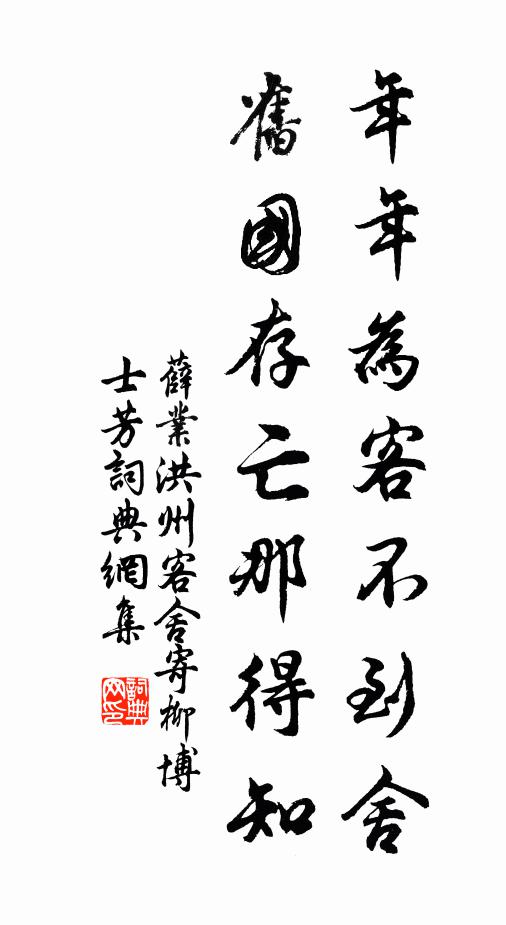 年年為客不到舍
舊國存亡那得知
薛業洪州客舍寄柳博
士芳詞典網集
詞典
网印